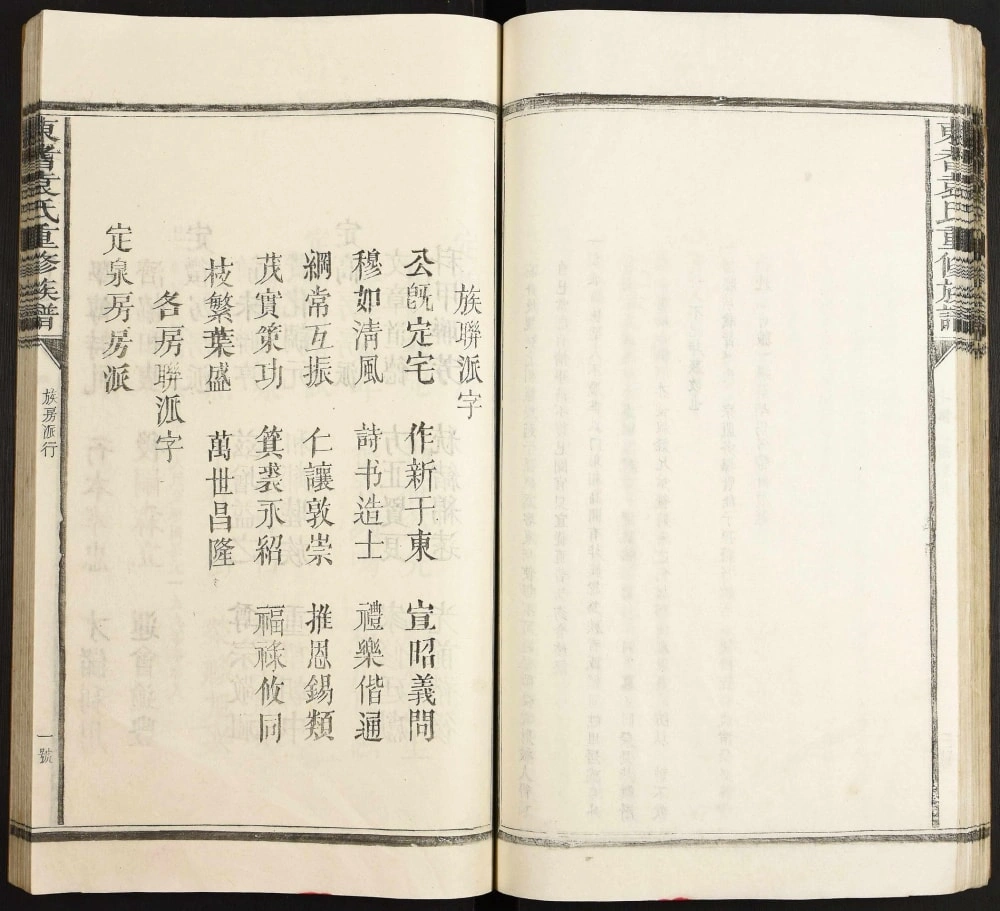 東㟭袁氏重修族譜
族聯派字
公旣定宅 作新于東 宣昭義問
穆如清風 詩书造士 禮樂偕通
綱常互振 仁讓敦崇 推恩錫類
茂實策功 箕裘永紹 福祿攸同
枝繁葉盛 萬世昌隆
各房聯派字
定泉房房派
東㟭袁氏重修族譜
族房派行
一號